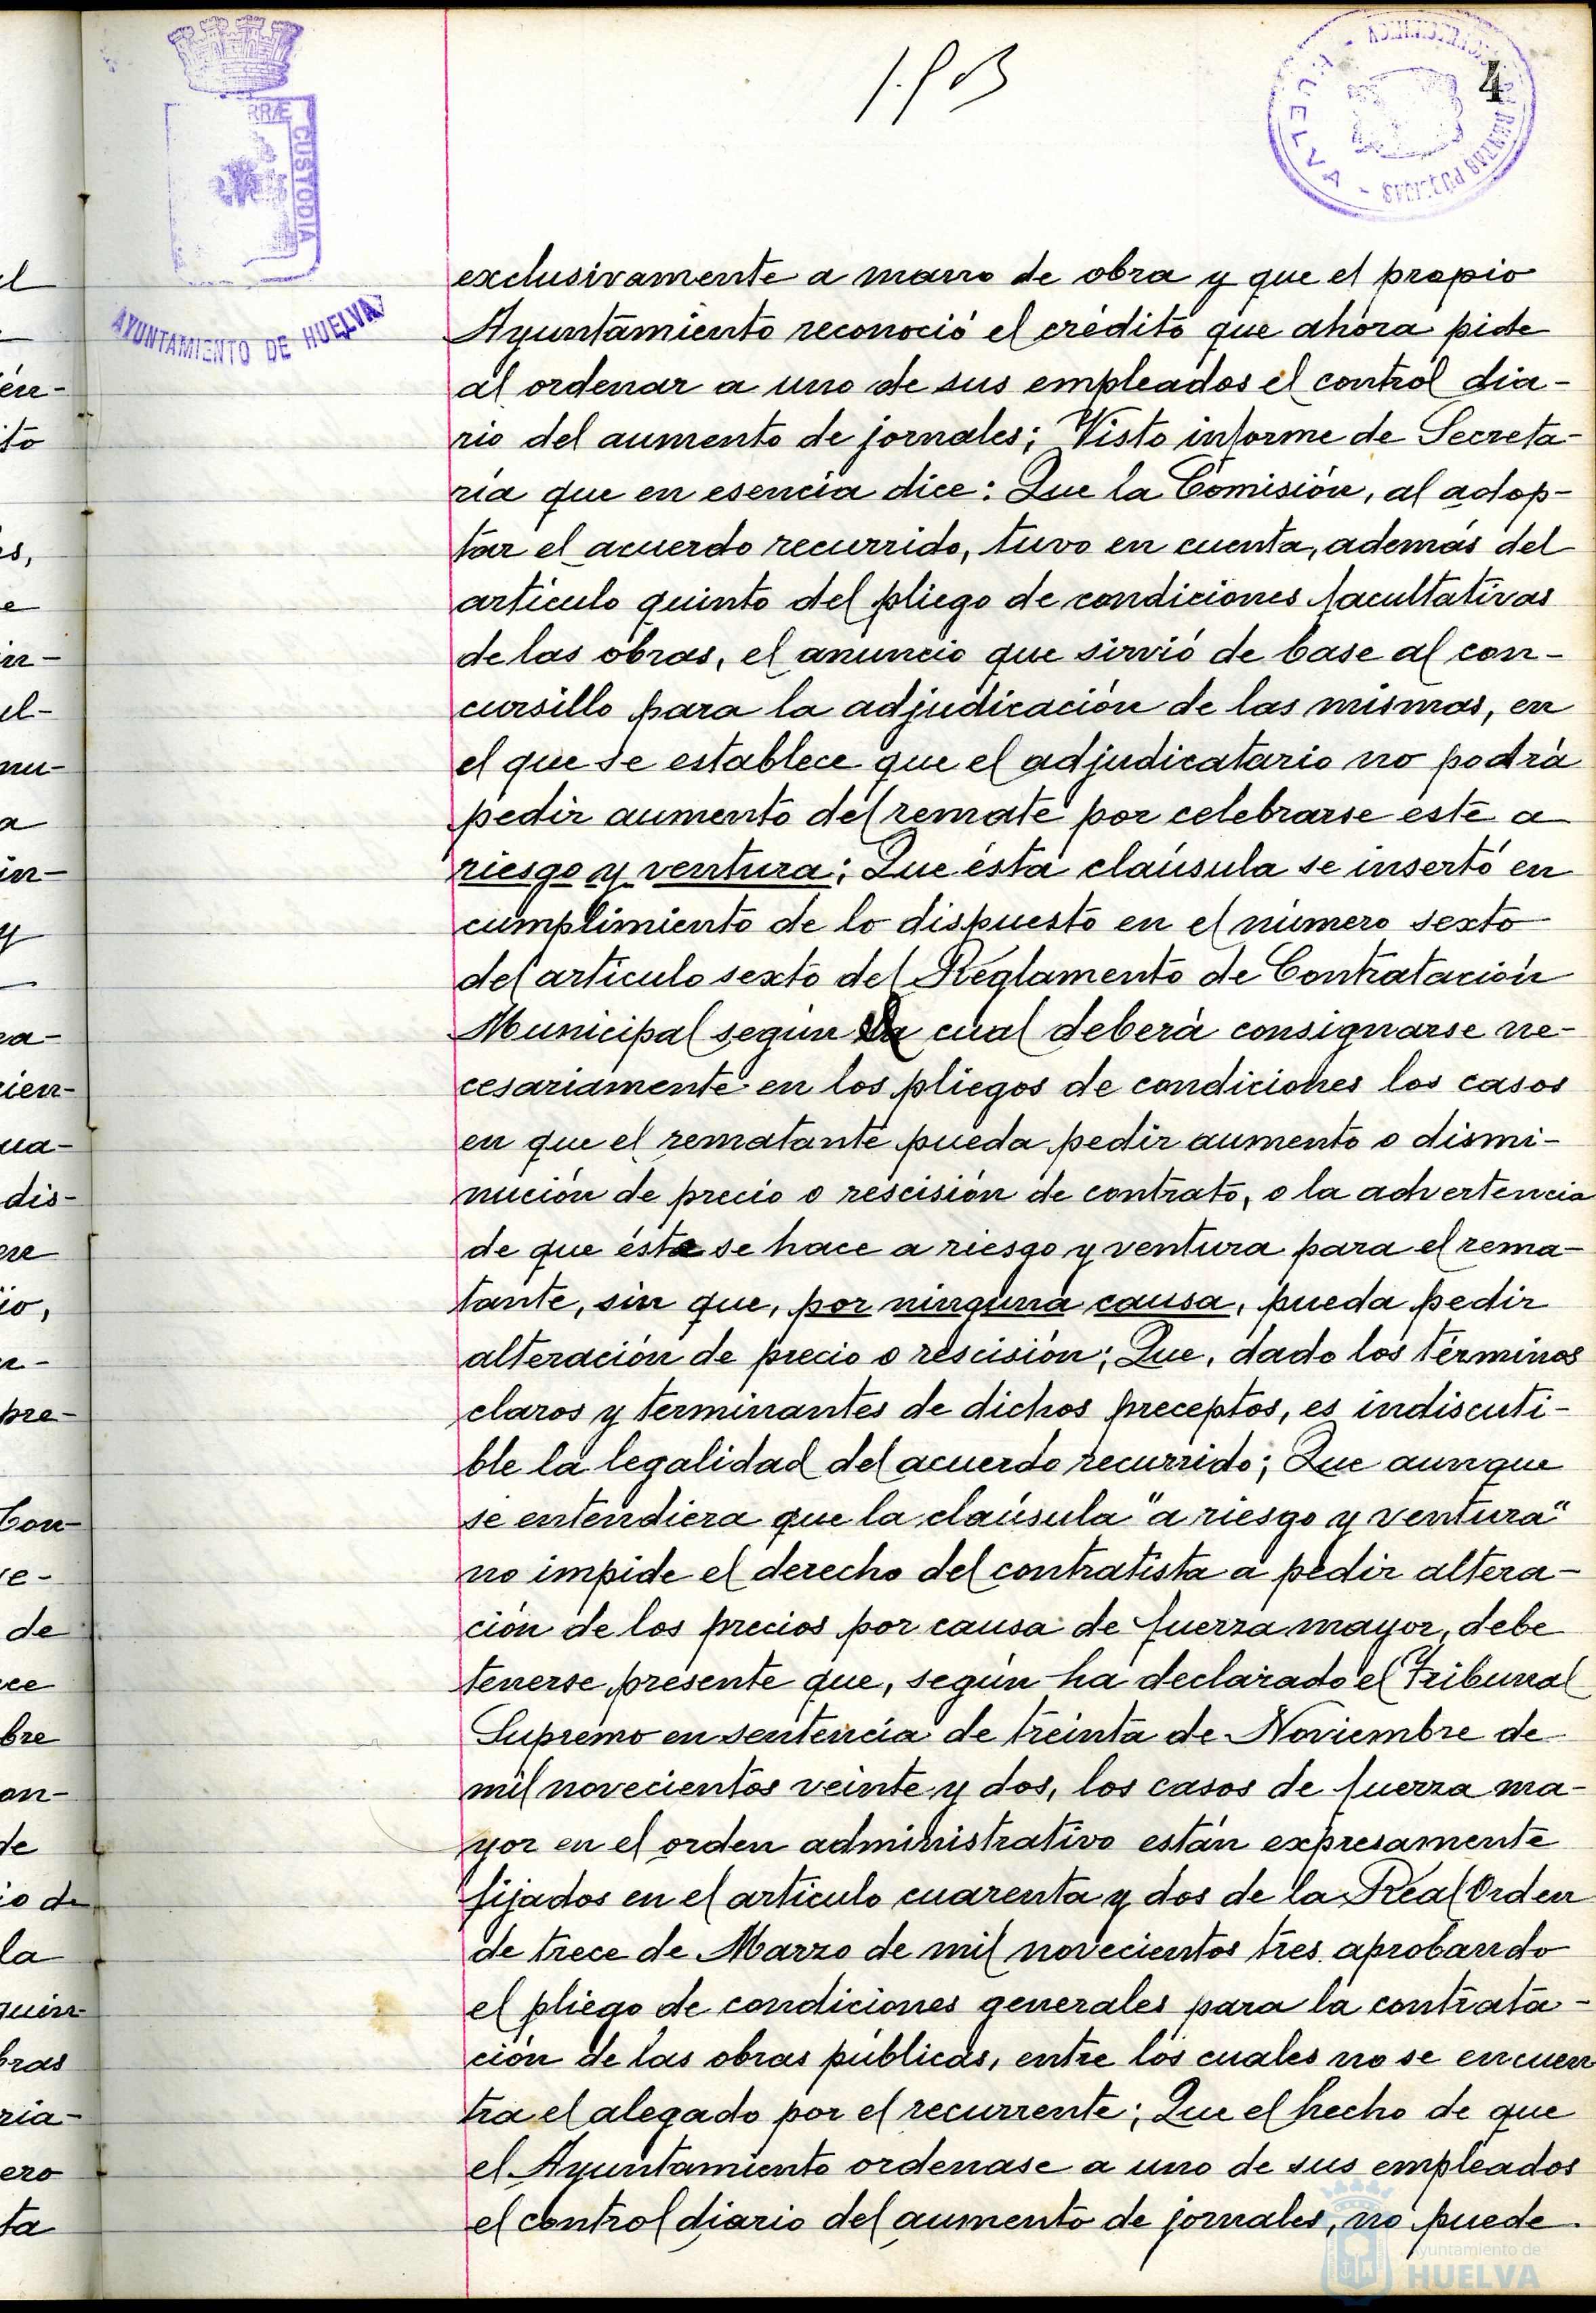 4
RRÆ
CUSTODIA
AYUNTAMIENTO DE HUELVA
HUELVA
exclusivamente a mano de obra y que el propio
Ayuntamiento reconoció el crédito que ahora pide
al ordenar a uno de sus empleados el control dia-
rio del aumento de jornales; Visto informe de Secreta-
ría que en esencia dice: Que la Comisión, al adop-
tar el acuerdo recurrido, tuvo en cuenta, además del
artículo quinto del pliego de condiciones facultativas
de las obras, el anuncio que sirvió de base al con-
cursillo para la adjudicación de las mismas, en
el que se establece que el adjudicatario no podrá
pedir aumento del remate por celebrarse este a
riesgo y ventura; Que ésta claúsula se insertó en
cumplimiento de lo dispuesto en el número sexto
del artículo sexto del Reglamento de Contratación
Municipal según la cual deberá consignarse ne-
cesariamente en los pliegos de condiciones los casos
en que el rematante pueda pedir aumento o dismi-
nución de precio o rescisión de contrato, o la advertencia
de que éste se hace a riesgo y ventura para el rema-
tante, sin que, por ninguna causa, pueda pedir
alteración de precio o rescisión; Que, dado los términos
claros y terminantes de dichos preceptos, es indiscuti-
ble la legalidad del acuerdo recurrido; Que aunque
se entendiera que la claúsula "a riesgo y ventura"
no impide el derecho del contratista a pedir altera-
ción de los precios por causa de fuerza mayor, debe
tenerse presente que, según ha declarado el Tribunal
Supremo en sentencia de treinta de Noviembre de
mil novecientos veinte y dos, los casos de fuerza ma-
yor en el orden administrativo están expresamente
fijados en el artículo cuarenta y dos de la Real Orden
de trece de Marzo de mil novecientos tres aprobando
el pliego de condiciones generales para la contrata-
ción de las obras públicas, entre los cuales no se encuen
tra el alegado por el recurrente; Que el hecho de que
el Ayuntamiento ordenase a uno de sus empleados
el control diario del aumento de jornales, no puede
Ayuntamiento de
HUELVA